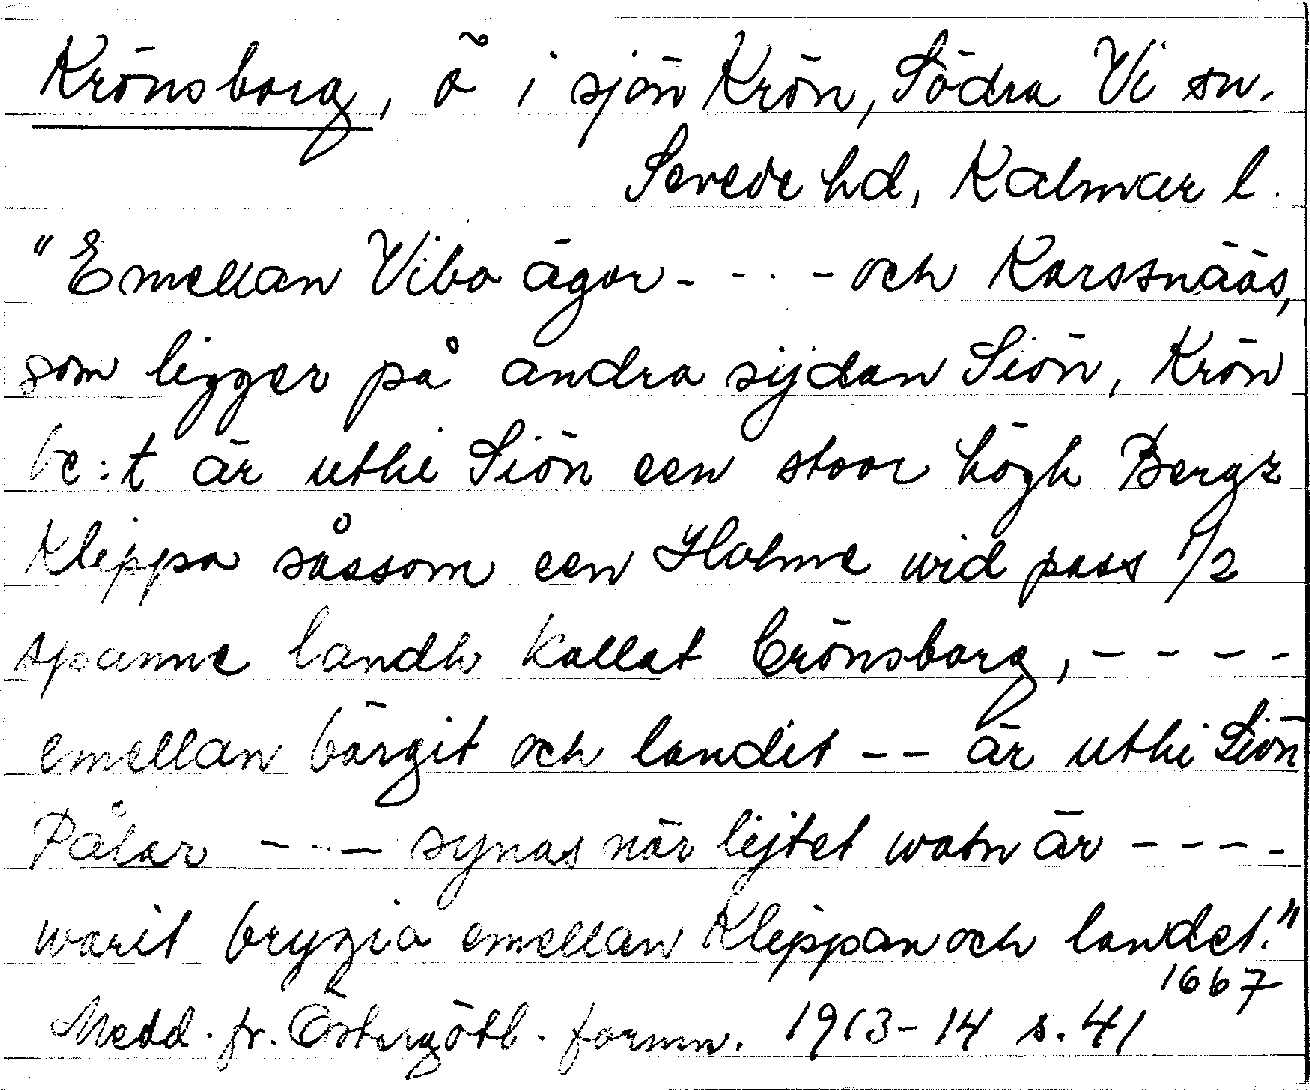 Krönsborg, ö i sjön Krön, Södra Vi sn.
Sevede hd, Kalmar l.
"Emellan Vibo ägor - - - - och Korssnääs,
som ligger på andra sijdan Siön, Krön
be:t är uthi Siön een stoor högh Bergz
Klippa såssom een Holme wid pass 1/2
spanne landh kallat Crönsborg, - - - -
emellan bärgit och landit - - är uthi Siön
Pålar - - - - synas när lijtet watn är - - - -
warit bryggia emellan Klippan och landet."
1667
Medd. fr. Östergötl. fornm. 1913-14 s. 41